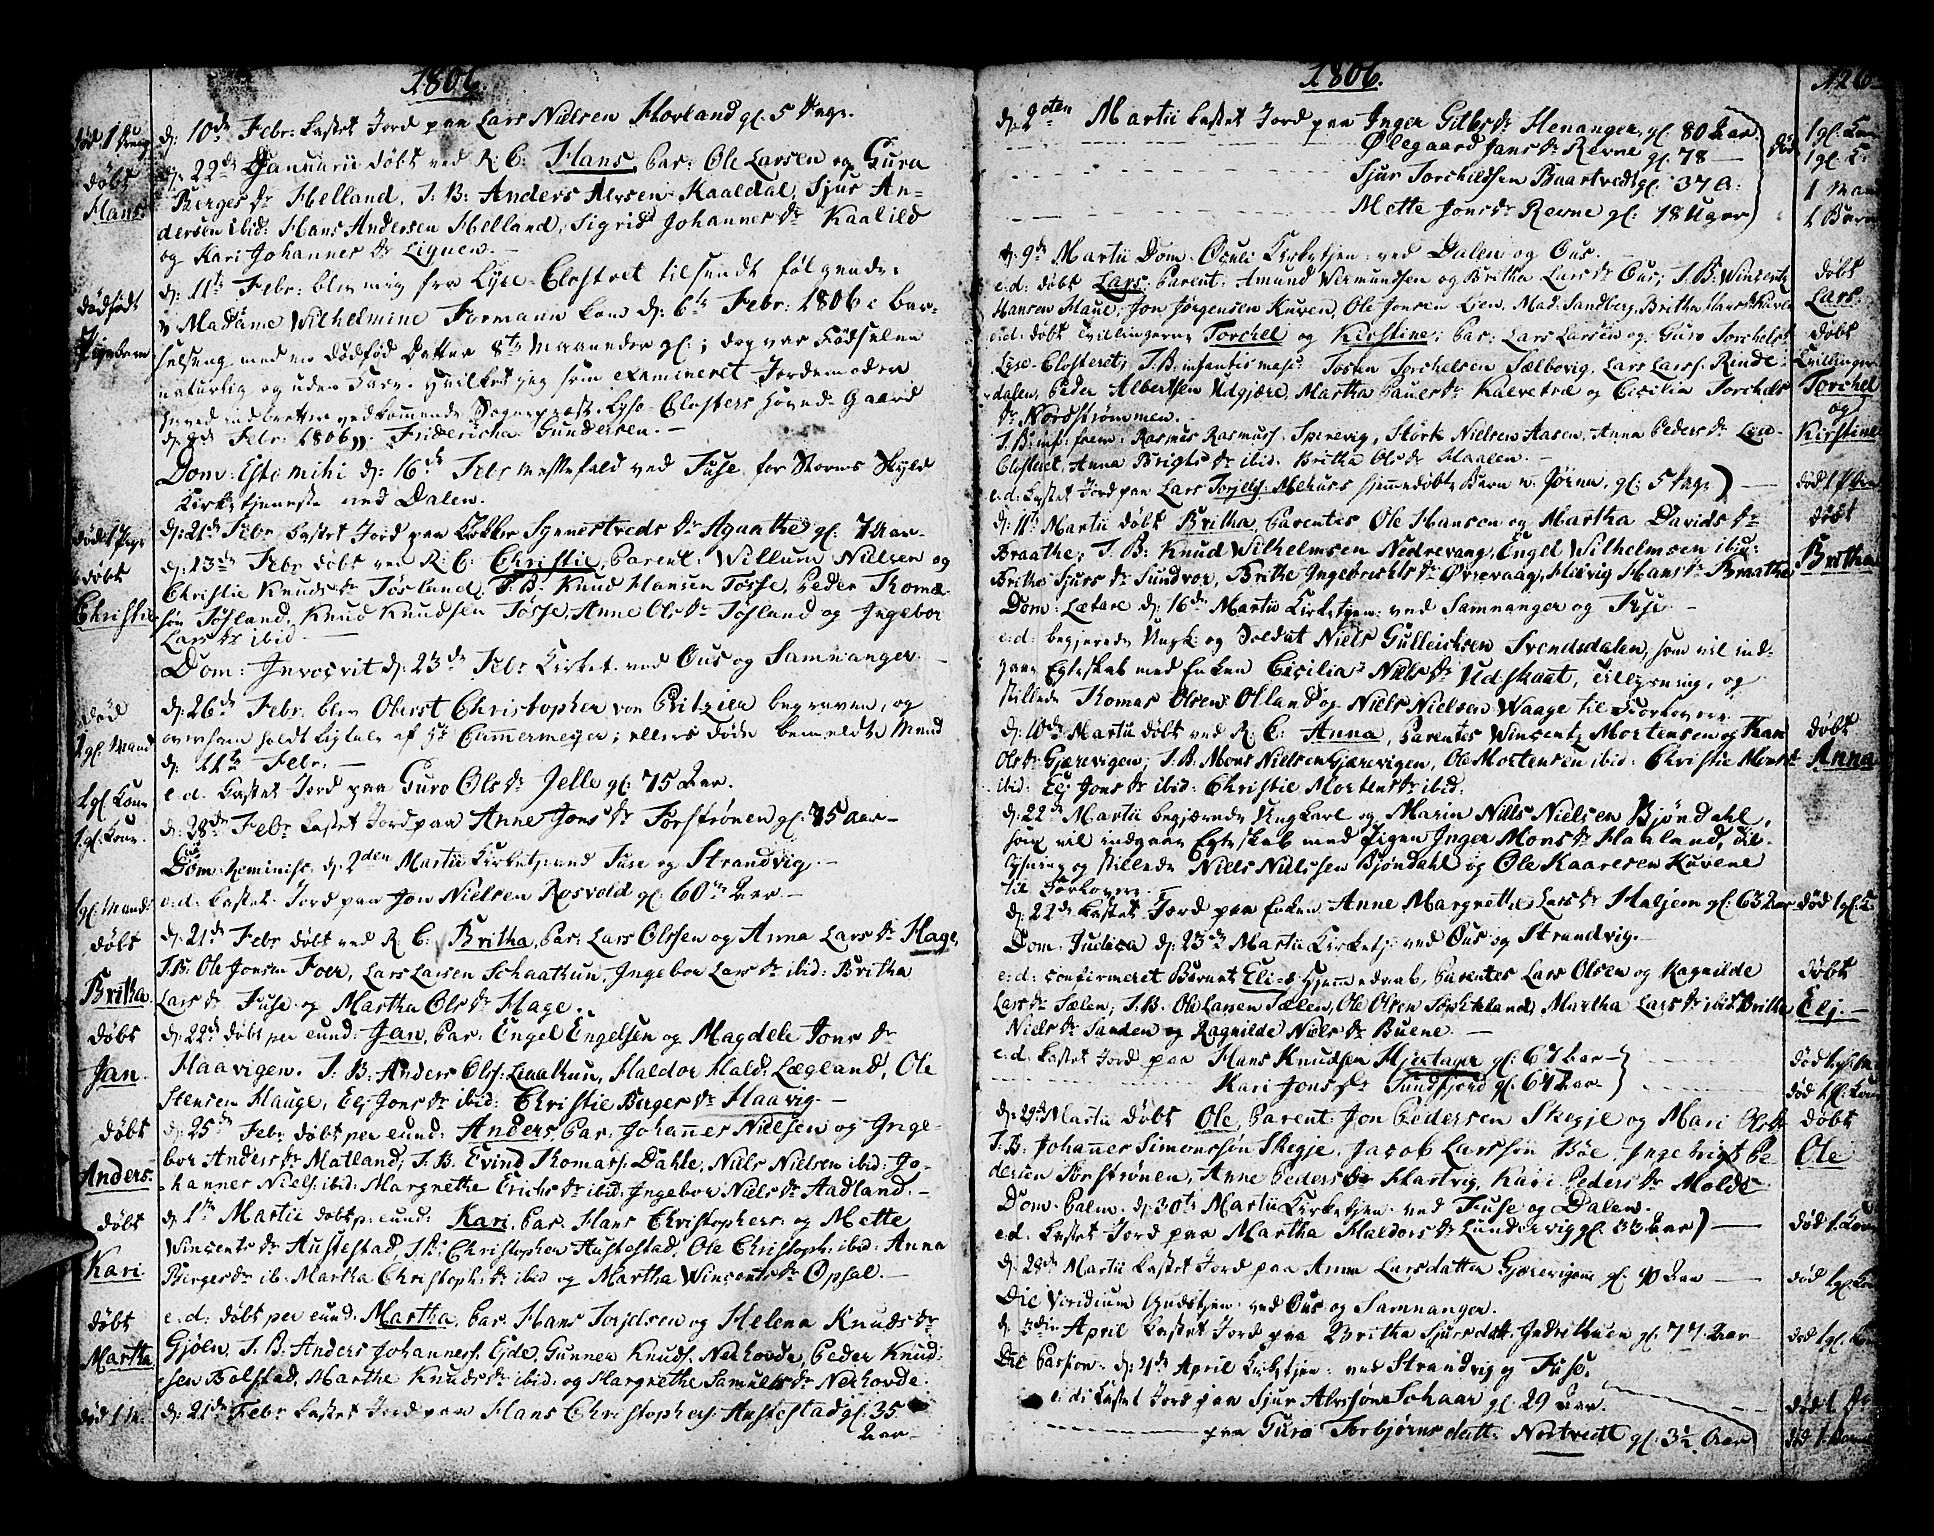 1806.
død 1 Dreng
d: 10de Febr: kastet Jord paa Lars Nielsen Hovland gl: 5 Dage.
døbt
Hans
d: 22de Januarii døbt ved R: C: Hans, Par: Ole Larsen og Gura
Berges Dr Helland, T. B: Anders Alvsen Kaaldal, Sjur An-
dersen ibid: Hans Andersen Helland, Sigrid Johannes Dr Kaalild
og Kari Johannes Dr Lignen.
dødfødt
Pigebarn
d: 11te Febr: blev mig fra Lyse-Closteret tilsendt følgende:
Madame Wilhelmine Formann kom d: 6te Febr: 1806 i Bar-
selseng med en dødfød Datter 8te Maaneder gl:; dog var Fødselen
naturlig og uden Fare. Hvilket jeg som examineret Jordemoder
herved indberetter vedkommende Sognepræst. Lyse-Closters Hoved-Gaard
d: 8de Febr: 1806,, Fridericha Gundersen.
Dom: Esto mihi d: 16de Febr Messefald ved Fuse for Storms Skyld
Kirketjeneste ved Dalen.
død 1 Pige
d: 21de Febr kastet Jord paa Synnestveds Dr Agaathe gl: 7 Aar
døbt
Christie
d: 23de Febr døbt ved R: C: Christie, Parent: Willum Nielsen og
Christie Knuds Dr Tøsland, T. B: Knud Hansen Tøsse, Peder Thoma-
søn Tøsland, Knud Knudsen Tøsse, Anne Ols Dr Tøsland og Ingebor
Lars Dr ibid.
Dom: Invocvit d: 23de Febr Kirket: ved Ous og Samnanger.
død
1 gl: Mand
d: 26de Febr: blev Oberst Christopher von Pritzier begraven, og
overham holdt Ligtale af Hr Cammermeyer; ellers døde bemeldte Mand
d: 11te Febr.
1 gl: Kone
e. d. kastet Jord paa Guro Ols Dr Jelle gl: 75 Aar.
1 gl: Kone.
d: 28de Febr kastet Jord paa Anne Jons Dr Forstrønen gl: 85 Aar
Dom: Reminisc. d: 2den Martii Kirketj: ved Fuse og Strandvig.
1 gl: Mand
e: d: kastet Jord paa Jon Nielsen Rosvold gl: 60 Aar
døbt
Britha
d: 21de Febr døbt ved R: C: Britha, Par: Lars Olssen og Anna Lars Dr Hage,
T. B: Ole Jonsen Foer, Lars Larsen Schaathun, Ingebor Lars Dr ibid: Britha
Lars Dr Fuse og Martha Ols Dr Hage.
døbt
Jan
d: 22de døbt per eund: Jan, Par: Engel Engelsen og Magdele Jons Dr
Haavigen. T. B: Anders Ols: Lenathun, Haldor Hald: Lægland, Ole
Stensen Hauge, Elj Jons Dr ibid: Christie Berges Dr Haavig.
døbt
Anders
d: 25de Febr døbt per eund: Anders, Par: Johannes Nielsen og Inge-
bor Anders Dr Matland, T. B. Evind Thomass: Dahle, Niels Nielsen ibid: Jo-
hannes Niels: ibid: Margrethe Erichs Dr ibid: Ingebor Niels Dr Aadland.
døbt
Kari
d: 1te Martii døbt p: eund: Kari, Par. Hans Christophers: og Mette
Winsents Dr Austestad, T. B: Christopher Austestad, Ole Christoph: ibid: Anna
Berges Dr ib: Martha Christoph: Dr ibid og Martha Winsents Dr Opsal.
døbt
Martha
e: d: døbt per eund: Martha, Par. Hans Torjelsen og Helena Knuds Dr
Gjøen, T. B: Anders Johanness. Eide, Gunner Knuds. Nerhovde, Peder Knud-
sen Bolstad, Marthe Knuds Dr ibid: og Margrethe Samuels Dr Nerhovde.
død 1 M.
d: 21de Febr kastet Jord paa Hans Christophers: Austestad gl: 35
Aar
1806.
126
d: 2den Martii kastet Jord paa Inger Gitles Dr Henanger, gl: 80 Aar
død 1 gl: Kone
Ølegaard Jans Dr Revne gl: 78
1 gl: K
Sjur Torchildsen Baartvedt gl: 37 A:
1 Mand
Mette Jons Dr Revne gl: 18 Uger
1 Barn
d: 9de Martii Dom: Oculi Kirketjen: ved Dalen og Ous.
døbt
Lars
e: d: døbt Lars, Parent: Amund Vermundsen og Britha Lars Dr Ous, T. B: Winsents
Hansen Haue, Jon Jørgensen Kuven, Ole Jonsen Lien, Mad: Sandberg, Britha Hans Dr Kuven
døbt
Tvillinger
Torchel
og
Kirstine
e: d: døbt Tvillingerne Torchel og Kirstine, Par: Lars Larsen og Guro Torchels Dr
Lyse-Closteret, T. B. infantis masc: Tosten Torchelsen Sælbovig, Lars Larss: Rinde-
dalen, Peder Albertsen Udgjære, Martha Pauers Dr Kalvetræ og Cicilia Torchels
Dr Nordstrømmen.
T. B: inf: foem: Rasmus Rasmuss: Spirevig, Størk Nielsen Aasen, Anna Peders Dr Lyse-
Closteret, Anna Brigts Dr ibid. Britha Ols Dr Haalen.
e: d: kastet Jord paa Lars Torjels: Melhuus hjemmedøbte Barn n: Jørna, gl: 5 Dage
død 1 Pige
døbt
Britha
d: 11te Martii døbt Britha, Parentes Ole Hansen og Martha Davids Dr
Braathe, T. B: Knud Wilhelmsen Nedrevaag, Engel Wilhelmsen ibid:
Britha Sjurs Dr Sundvor, Brithe Ingebrichts Dr Øvrevaag, Helvig Hans Dr Braathe
Dom: Lætare d: 16de Martii Kirketjen: ved Samnanger og Fuse.
e: d: begjerede Ungk: og Soldat Niels Gulleichsen Svendsdalen, som vil ind-
gaae Egteskab med Enken Cicilia Niels Dr Udskaat, Tillysning, og
stillede Thomas Olsen Ølland og Niels Nielsen Waage til Forlovere
døbt
Anna
d: 10de Martii døbt ved R: C: Anna, Parentes Winsents Mortensen og Kari
Ols Dr Gjærevigen, T. B: Mons Nielsen Gjærevigen, Ole Mortensen ibid: Christie Mons Dr
ibid: Elj Jons Dr ibid: Christie Mortens Dr ibid.
d: 22de Martii begjærede Ungkarl og Marin Nills Nielsen Bjøndahl,
som vil indgaae Egteskab med Pigen Inger Mons Dr Haaland, Til-
lysning og stillede Niels Nielssen Bjøndahl og Ole Kaaresen Kuvene
til Forlovere.
d: 22de kastet Jord paa Enken Anne Margrethe Lars Dr Haljem gl: 63 Aar
død 1 gl: K
Dom: Judica d: 23de Martii Kirketj: ved Ous og Strandvig.
døbt
Elj.
e: d: confirmeret Barnet Eli-s Hjemmedaab, Parentes Lars Olsen og Ragnilde
Lars Dr Sælen, T. B: Ole Larsen Sælen, Ole Olsen Søfteland, Martha Lars Dr ibid: Britha
Niels Dr Sanden og Ragnilde Niels Dr Buene.
e: d: kastet Jord paa Hans Knudsen Hjertager gl: 67 Aar
død 1 gl: M.
Kari Jons Dr Sundfjord gl: 64 Aar
død 1 gl: Kone
døbt
Ole
d: 29de Martii døbt Ole, Parent Jon Pedersen Skegje og Mari Ols Dr
T. B: Johannes Simonssøn Skegje, Jacob Larssøn Bøe, Ingebrigt Pe-
dersen Forstrønen, Anne Peders Dr Hartvig, Kari Peders Dr Molde
Dom. Palm. d: 30te Martii Kirketjen: ved Fuse og Dalen.
e: d: kastet Jord paa Martha Haldors Dr Lundervig gl: 33 Aar
død 1 Kone
d: 28de Martii kastet Jord paa Anna Larsdatter Gjærevigen gl: 90 Aar
død 1 gl: Kone
Die Viridium Gudstjen: ved Ous og Samnanger.
d: 3die April kastet Jord paa Britha Sjursdatt: Indrethuen gl: 77 Aar
død 1 gl: Kone
Die Passion: d: 4de April Kirketjen: ved Strandvig og Fuse.
e: d: kastet Jord paa Sjur Alvssøn Schaar gl: 29 Aar.
død 1
paa Guro Torbjørnsdatt: Nortvedt gl: 3½ Aar
død 1 Barn